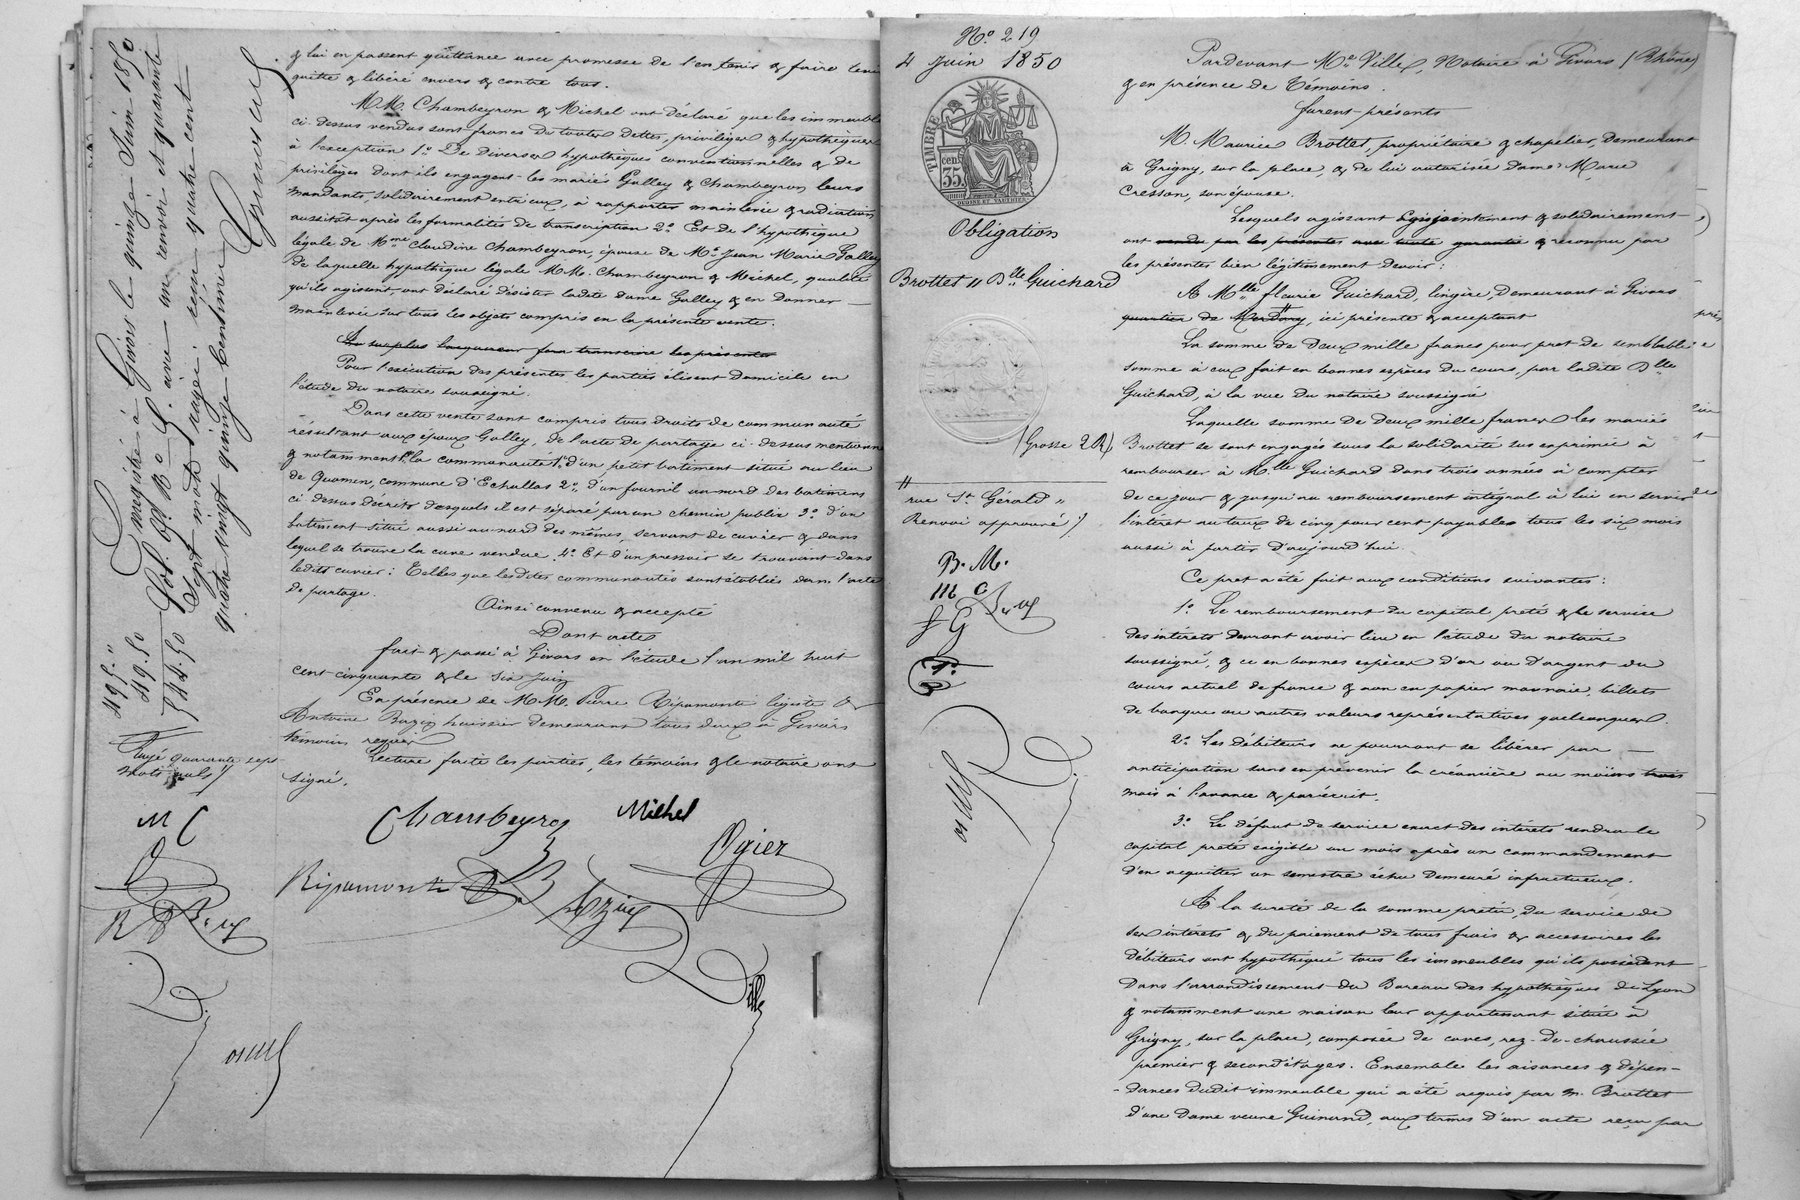 & lui en passent quittance avec promesse de l'en tenir & faire tenir
quitte & libéré envers & contre tous.
MM. Chambeyron & Michel ont déclaré que les immeubles
ci-dessus vendus sont francs de toutes dettes, privilèges & hypothèques
à l'exception 1o De diverses hypothèques conventionnelles & de
privilèges dont ils engagent les mariés Galley & Chambeyron leurs
mandants, solidairement entr'eux, à rapporter mainlevée & radiation
aussitot après les formalités de transcription 2o Et de l'hypothèque
légale de Mme Claudine Chambeyron, épouse de Mr Jean Marie Galley
de laquelle hypothèque légale MM. Chambeyron & Michel, qualité
qu'ils agissent, ont déclaré désister ladite dame Galley & en donner
mainlevée sur tous les objets compris en la présente vente.
Au surplus l'acquéreur fera transcrire les présentes
Pour l'exécution des présentes les parties élisent domicile en
l'étude du notaire soussigné.
Dans cette vente sont compris tous droits de communauté
résultant aux époux Galley, de l'acte de partage ci-dessus mentionné
& notamment la communauté 1o d'un petit batiment situé au lieu
de Quamen, commune d'Echallas 2o d'un fournil au nord des batimens
ci dessus décrits desquels il est séparé par un chemin public 3o d'un
batiment situé aussi au nord des mêmes, servant de cuvier & dans
lequel se trouve la cuve vendue 4o Et d'un pressoir se trouvant dans
ledit cuvier : Telles que lesdites communautés sont établies dans l'acte
de partage.
Ainsi convenu & accepté
Dont acte
fait & passé à Givors en l'étude l'an mil huit
cent cinquante & le six Juin
En présence de MM. Pierre Ripamonti légiste &
Antoine Bazin huissier demeurant tous deux à Givors
témoins requis
Lecture faite les parties, les témoins & le notaire ont
signé.
Chambeyron Michel
Ogier
Ripamonti
Ville
Enregistré à Givors le quinze Juin 1850
sept mots rayés
quatre vingt quinze centimes
495. "
49.50
544.50
Rayé quarante sept
mots nuls
M C
No 219
4 Juin 1850
TIMBRE
35 cent
Obligation
Brottet à Dlle Guichard
(Grosse 2 R)
rue St Gérald "
Renvoi approuvé
B. M.
m C
f G
Pardevant Me Ville, Notaire à Givors (Rhône)
& en présence de Témoins.
furent présents
M. Maurice Brottet, propriétaire & chapelier, demeurant
à Grigny, sur la place, & de lui autorisée Dame Marie
Cresson, son épouse.
Lesquels agissant conjointement & solidairement
ont vendu par les présentes avec toute garantie & reconnu par
les présentes bien légitimement devoir :
A Mlle fleurie Guichard, lingère, demeurant à Givors
quartier de, ici présente & acceptant
La somme de Deux mille francs pour pret de semblable
somme à eux fait en bonnes espèces du cours, par ladite Dlle
Guichard, à la vue du notaire soussigné
Laquelle somme de Deux mille francs les mariés
Brottet se sont engagés sous la solidarité sus exprimée à
rembourser à Mlle Guichard dans trois années à compter
de ce jour & jusqu'au remboursement intégral à lui en servir
l'intéret au taux de cinq pour cent payables tous les six mois
aussi à partir d'aujourd'hui.
Ce pret a été fait aux conditions suivantes :
1o Le remboursement du capital preté & le service
des intérets devront avoir lieu en l'étude du notaire
soussigné, & ce en bonnes espèces d'or ou d'argent du
cours actuel de france & non en papier monnaie, billets
de banque ou autres valeurs représentatives quelconques.
2o Les débiteurs ne pourront se libérer par
anticipation sans en prévenir la créancière au moins trois
mois à l'avance & par écrit.
3o Le défaut de service exact des intérets rendra le
capital preté exigible un mois après un commandement
d'en acquitter un semestre échu demeuré infructueux.
A la sureté de la somme pretée, du service de
ses intérets & du paiement de tous frais & accessoires les
débiteurs ont hypothéqué tous les immeubles qu'ils possèdent
Dans l'arrondissement du Bureau des hypothèques de Lyon
& notamment une maison leur appartenant située à
Grigny, sur la place, composée de caves, rez-de-chaussée
premier & second étages. Ensemble les aisances & dépen-
-dances dudit immeuble qui a été acquis par M. Brottet
d'une Dame veuve Guinand, aux termes d'un acte reçu par